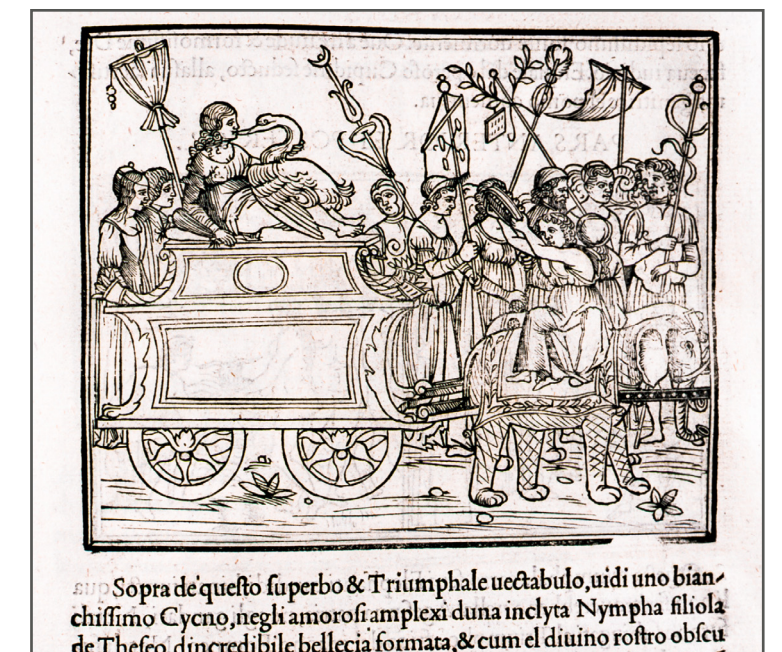 Sopra de questo superbo & Triumphale uectabulo, uidi uno bian-
chissimo Cycno, negli amorosi amplexi duna inclyta Nympha filiola
de Theseo, dincredibile bellecia formata, & cum el diuino rostro obscu